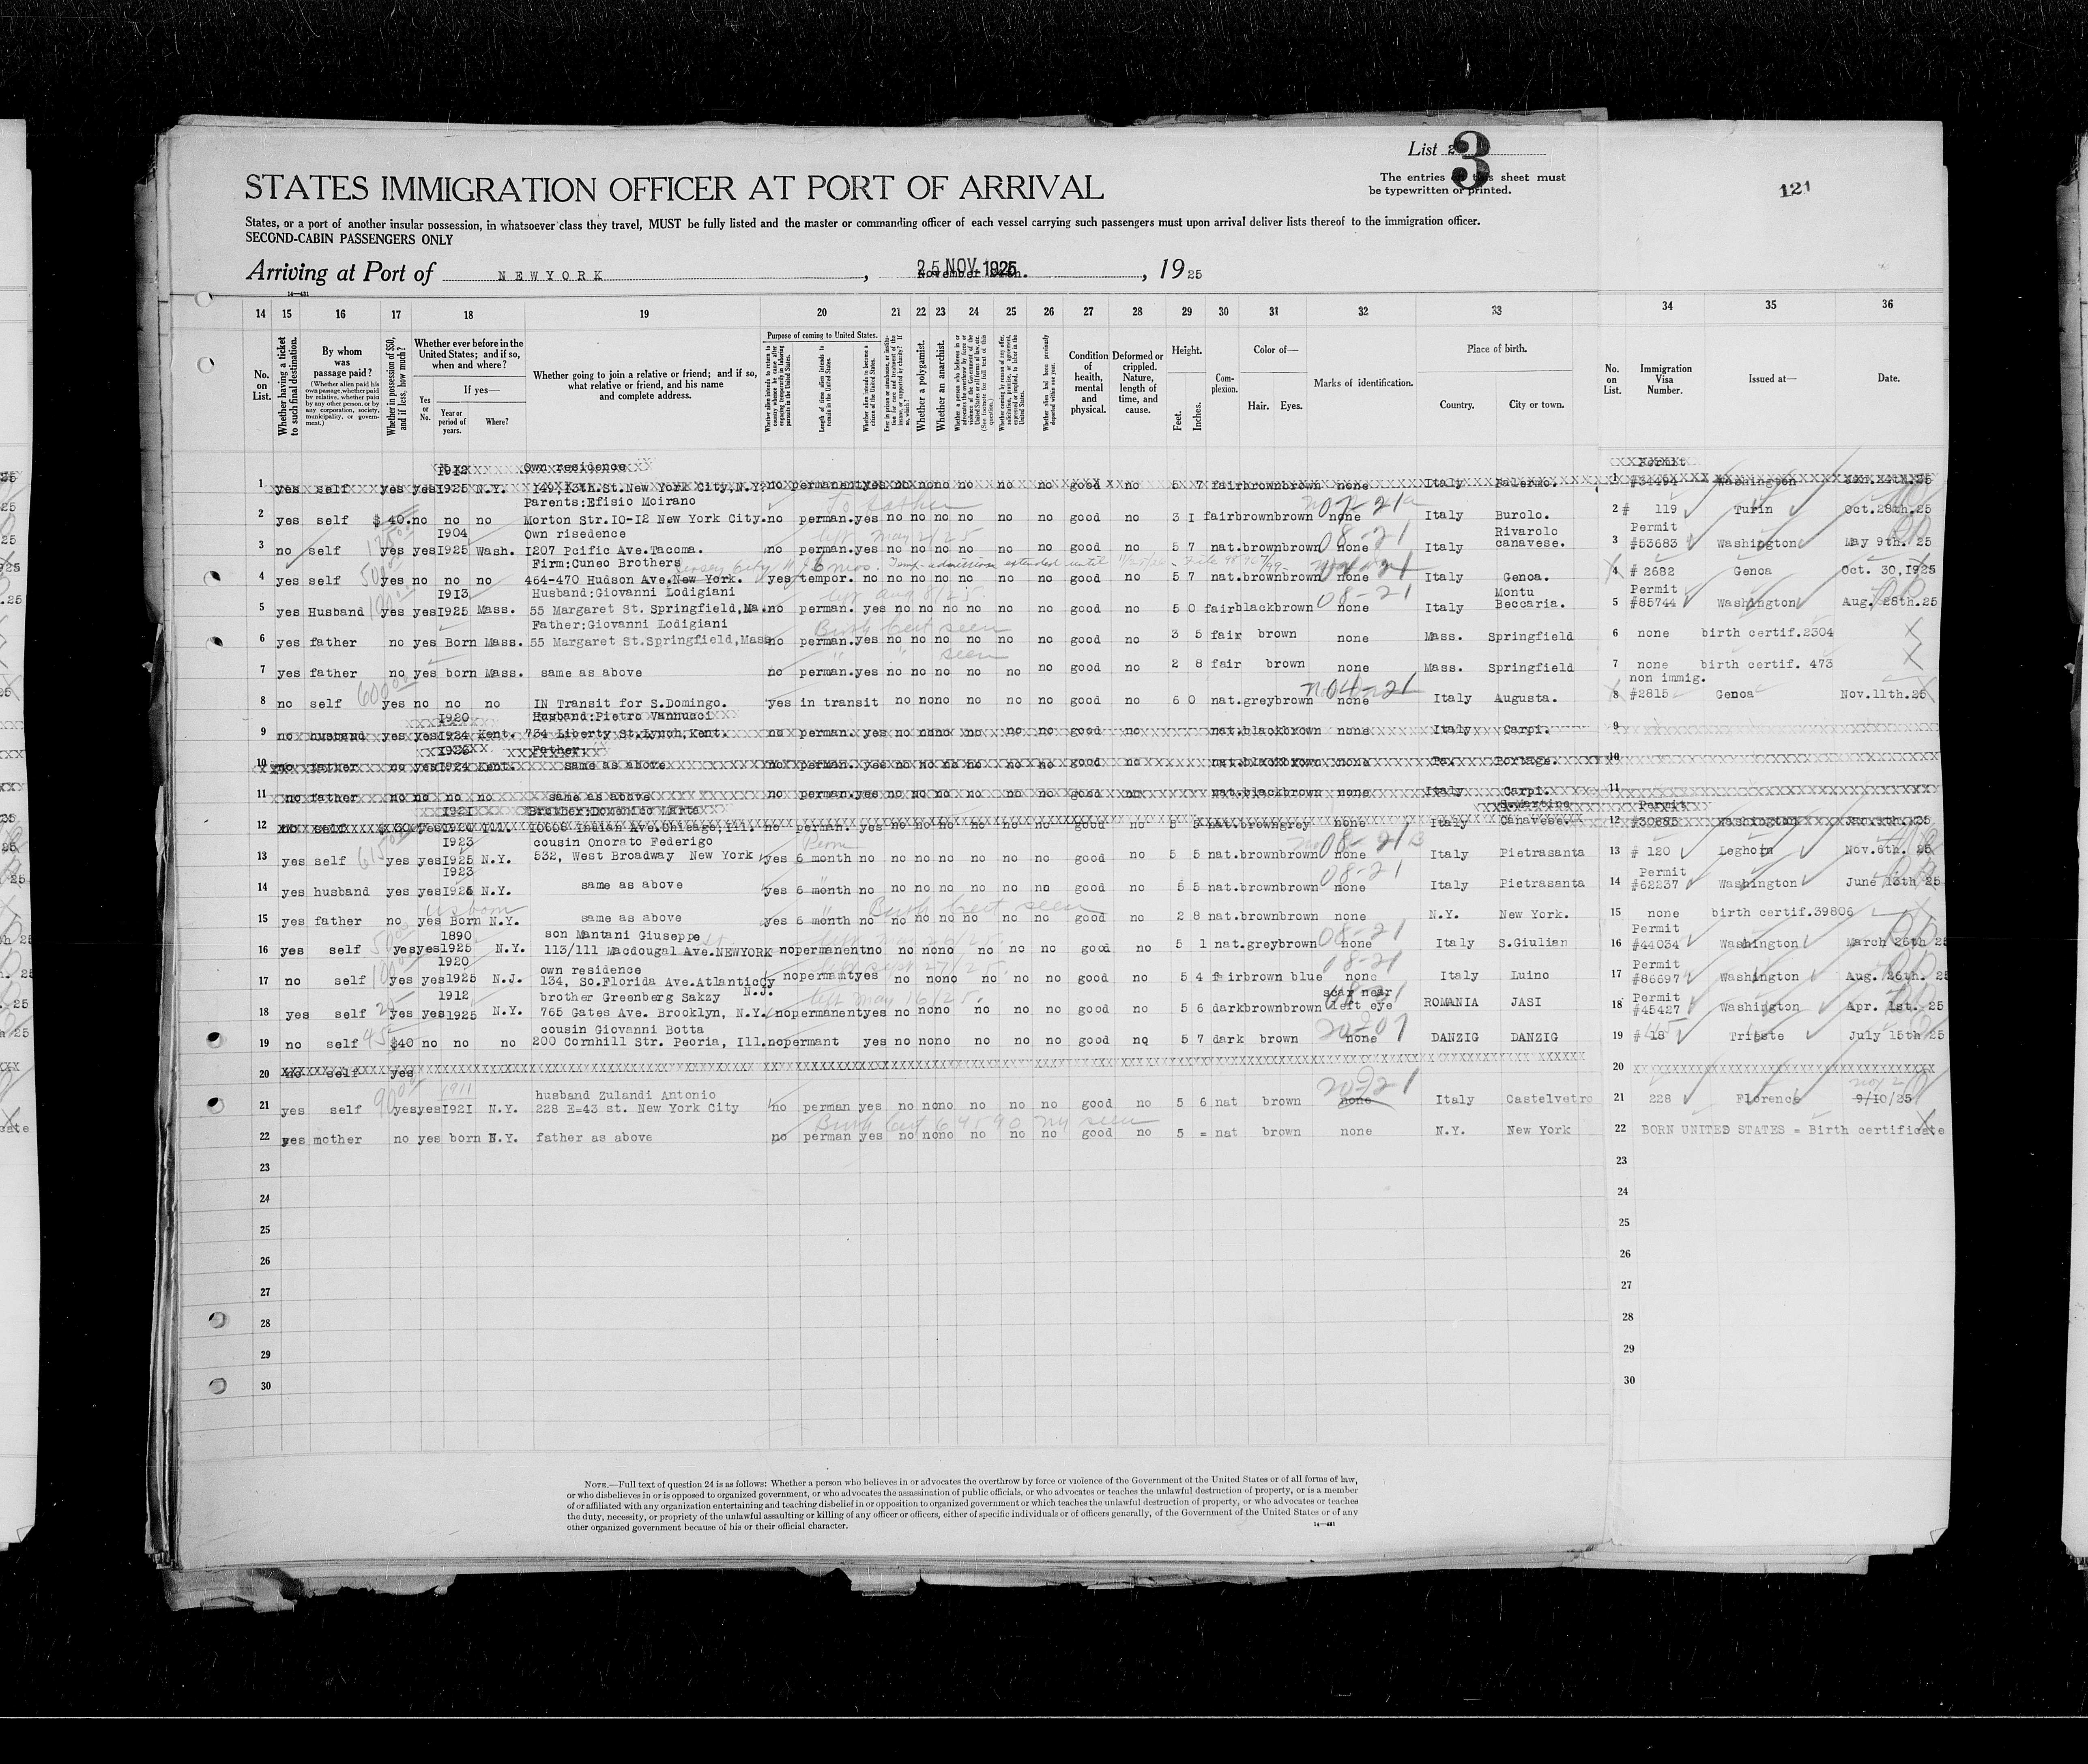 List 2
3
The entries on this sheet must
be typewritten or printed.
121
STATES IMMIGRATION OFFICER AT PORT OF ARRIVAL
States, or a port of another insular possession, in whatsoever class they travel, MUST be fully listed and the master or commanding officer of each vessel carrying such passengers must upon arrival deliver lists thereof to the immigration officer.
SECOND-CABIN PASSENGERS ONLY
Arriving at Port of NEWYORK , 25 NOV 1925 , 19 25
14 15 16 17 18 19 20 21 22 23 24 25 26 27 28 29 30 31 32 33 34 35 36
No. on List.
Whether having a ticket to such final destination.
By whom was passage paid?
(Whether alien paid his own passage, whether paid by relative, whether paid by any other person, or by any corporation, society, municipality, or government.)
Whether in possession of $50, and if less, how much?
Whether ever before in the United States; and if so, when and where?
Yes or No.
If yes—
Year or period of years.
Where?
Whether going to join a relative or friend; and if so, what relative or friend, and his name and complete address.
Purpose of coming to United States.
Length of time alien intends to remain in the United States.
Whether alien intends to become a citizen of the United States.
Whether a polygamist.
Whether an anarchist.
Condition of health, mental and physical.
Deformed or crippled. Nature, length of time, and cause.
Height.
Feet. Inches.
Complexion.
Color of—
Hair. Eyes.
Marks of identification.
Place of birth.
Country. City or town.
No. on List.
Immigration Visa Number.
Issued at—
Date.
1912 Own residence Permit
1 yes self yes yes 1925 N.Y. 149, 13th. St. New York City, N.Y. no permanent yes no no no no no no good no 5 7 fair brown brown none Italy Palermo. 1 #34494 Washington
Parents:Efisio Moirano To father
2 yes self $ 40. no no no Morton Str. IO-I2 New York City. no perman. yes no no no no no no good no 3 I fair brown brown none Italy Burolo. 2 # 119 Turin Oct.28th.25
I904 Own risedence left May 2/25 08-21 Rivarolo Permit
3 no self yes yes I925 Wash. I207 Pcific Ave.Tacoma. no perman. yes no no no no no no good no 5 7 nat. brown brown none Italy canavese. 3 #53683 Washington May 9th. 25
Firm:Cuneo Brothers Jersey City 6 mos. Temp. admission extended until
4 yes self yes no no no 464-470 Hudson Ave.New York. yes tempor. no no no no no no no good no 5 7 nat. brown brown none Italy Genoa. 4 # 2682 Genoa Oct. 30,1925
I9I3 Husband:Giovanni Lodigiani left Aug 8/25. 08-21 Montu Permit
5 yes Husband yes yes I925 Mass. 55 Margaret St. Springfield,Ma. no perman. yes no no no no no no good no 5 0 fair black brown none Italy Beccaria. 5 #85744 Washington Aug. 28th.25
Father:Giovanni Lodigiani Birth cert seen
6 yes father no yes Born Mass. 55 Margaret St.Springfield,Mass no perman. yes no no no no no no good no 3 5 fair brown none Mass. Springfield 6 none birth certif.2304
" " seen
7 yes father no yes born Mass. same as above no perman. yes no no no no no no good no 2 8 fair brown none Mass. Springfield 7 none birth certif. 473
600 04-21 non immig.
8 no self yes no no no IN Transit for S.Domingo. yes in transit no no no no no no good no 6 0 nat. grey brown none Italy Augusta. 8 #2815 Genoa Nov.11th.25
I920 Husband:Pietro Vannucci
9 no husband yes yes I924 Kent. 734 Liberty St.Lynch,Kent. no perman. yes no no no no no no good no nat. black brown none Italy Carpi. 9
Father:
10 no father no yes I924 Kent. same as above no perman. yes no no no no no no good no nat. black brown none Pa. Portage. 10
11 no father no no no no same as above no perman. yes no no no no no no good no nat. black brown none Italy Carpi. 11
I921 Brother:Domenico S.Martino Permit
12 no self yes Ill. 10608 Indian Ave.Chicago,Ill. no perman. yes no no no no no no good no 5 5 nat. brown grey none Italy Canavese. 12 #30885 Washington
I923 cousin Onorato Federigo 08-21
13 yes self yes yes I925 N.Y. 532, West Broadway New York yes 6 month no no no no no no no good no 5 5 nat. brown brown none Italy Pietrasanta 13 # 120 Leghorn Nov.6th. 25
I923 08-21 Permit
14 yes husband yes yes I925 N.Y. same as above yes 6 month no no no no no no no good no 5 5 nat. brown brown none Italy Pietrasanta 14 #62237 Washington June 13th 25
us born " Birth cert seen
15 yes father no yes Born N.Y. same as above yes 6 month no no no no no no no good no 2 8 nat. brown brown none N.Y. New York. 15 none birth certif.39806
1890 son Mantani Giuseppe 08-21 Permit
16 yes self yes yes 1925 N.Y. 113/111 Macdougal Ave.NEWYORK no permanent no no no no no no no good no 5 1 nat. grey brown none Italy S.Giulian 16 #44034 Washington March 26th 25
1920 own residence left Sept 27/25. 08-21 Permit
17 no self yes yes 1925 N.J. 134, So.Florida Ave.Atlantic Cy N.J. no permant yes no no no no no no good no 5 4 fair brown blue none Italy Luino 17 #86697 Washington Aug. 26th. 25
1912 brother Greenberg Sakzy left May 16/25. scar near Permit
18 yes self yes yes 1925 N.Y. 765 Gates Ave. Brooklyn, N.Y. no permanent yes no no no no no no good no 5 6 dark brown brown left eye ROMANIA JASI 18 #45427 Washington Apr. 1st. 25
cousin Giovanni Botta
19 no self $40 no no no 200 Cornhill Str. Peoria, Ill. no permant yes no no no no no no good no 5 7 dark brown none DANZIG DANZIG 19 # 18 Trieste July 15th 25
20 no self yes 20
1911 husband Zulandi Antonio
21 yes self yes yes I92I N.Y. 228 E=43 st. New York City no perman yes no no no no no no good no 5 6 nat brown none Italy Castelvetro 21 228 Florence 9/10/25
Birth cert 64190 NY seen
22 yes mother no yes born N.Y. father as above no perman yes no no no no no no good no 5 = nat brown none N.Y. New York 22 BORN UNITED STATES = Birth certificate
23 23
24 24
25 25
26 26
27 27
28 28
29 29
30 30
NOTE.—Full text of question 24 is as follows: Whether a person who believes in or advocates the overthrow by force or violence of the Government of the United States or of all forms of law,
or who disbelieves in or is opposed to organized government, or who advocates the assassination of public officials, or who advocates or teaches the unlawful destruction of property, or is a member
of or affiliated with any organization entertaining and teaching disbelief in or opposition to organized government or which teaches the unlawful destruction of property, or who advocates or teaches
the duty, necessity, or propriety of the unlawful assaulting or killing of any officer or officers, either of specific individuals or of officers generally, of the Government of the United States or of any
other organized government because of his or their official character.
14—431